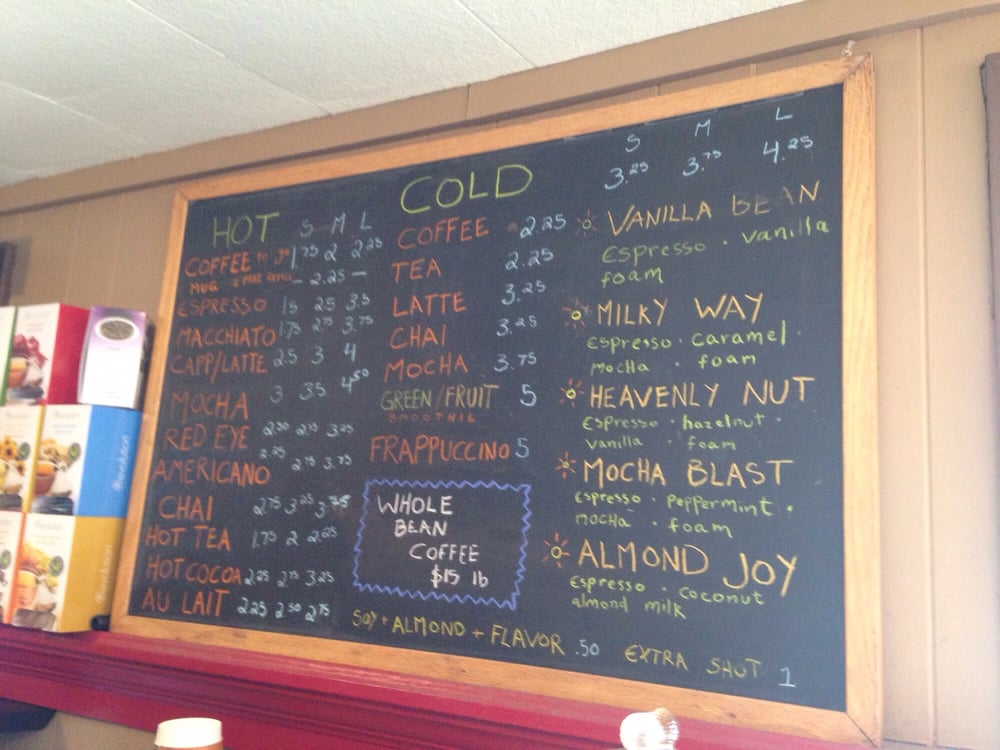 HOT S M L
COFFEE to go 1.75 2 2.25
MUG 2 FREE REFILLS - 2.25 -
ESPRESSO 1.5 2.5 3.5
MACCHIATO 1.75 2.75 3.75
CAPP/LATTE 2.5 3 4
MOCHA 3 3.5 4.50
RED EYE 2.50 2.75 3.25
AMERICANO 2.25 2.75 3.75
CHAI 2.75 3.25 3.75
HOT TEA 1.75 2 2.25
HOT COCOA 2.25 2.75 3.25
AU LAIT 2.25 2.50 2.75
COLD
COFFEE 2.25
TEA 2.25
LATTE 3.25
CHAI 3.25
MOCHA 3.75
GREEN/FRUIT 5
SMOOTHIE
FRAPPUCCINO 5
WHOLE
BEAN
COFFEE
$15 lb
S M L
3.25 3.75 4.25
VANILLA BEAN
Espresso · vanilla
foam
MILKY WAY
Espresso · caramel ·
mocha · foam
HEAVENLY NUT
Espresso · hazelnut ·
vanilla · foam
MOCHA BLAST
Espresso · peppermint ·
mocha · foam
ALMOND JOY
Espresso · coconut
almond milk
SOY + ALMOND + FLAVOR .50 EXTRA SHOT 1